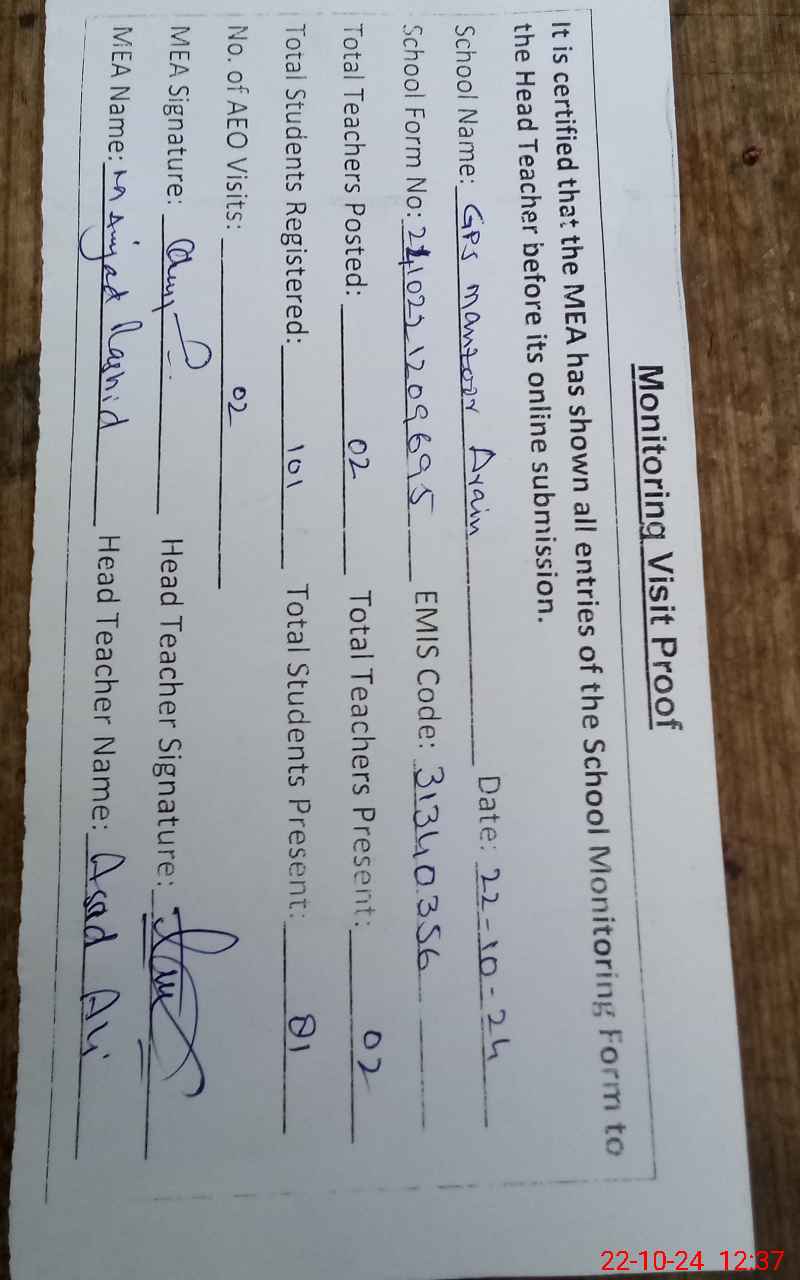 Monitoring Visit Proof
It is certified that the MEA has shown all entries of the School Monitoring Form to
the Head Teacher before its online submission.
School Name: GPS manzoor Arain Date: 22-10-24
School Form No: 2410231209695 EMIS Code: 31340356
Total Teachers Posted: 02 Total Teachers Present: 02
Total Students Registered: 101 Total Students Present: 81
No. of AEO Visits: 02
MEA Signature: Head Teacher Signature:
MEA Name: M Amjad Rashid Head Teacher Name: Asad Ali
22-10-24 12:37